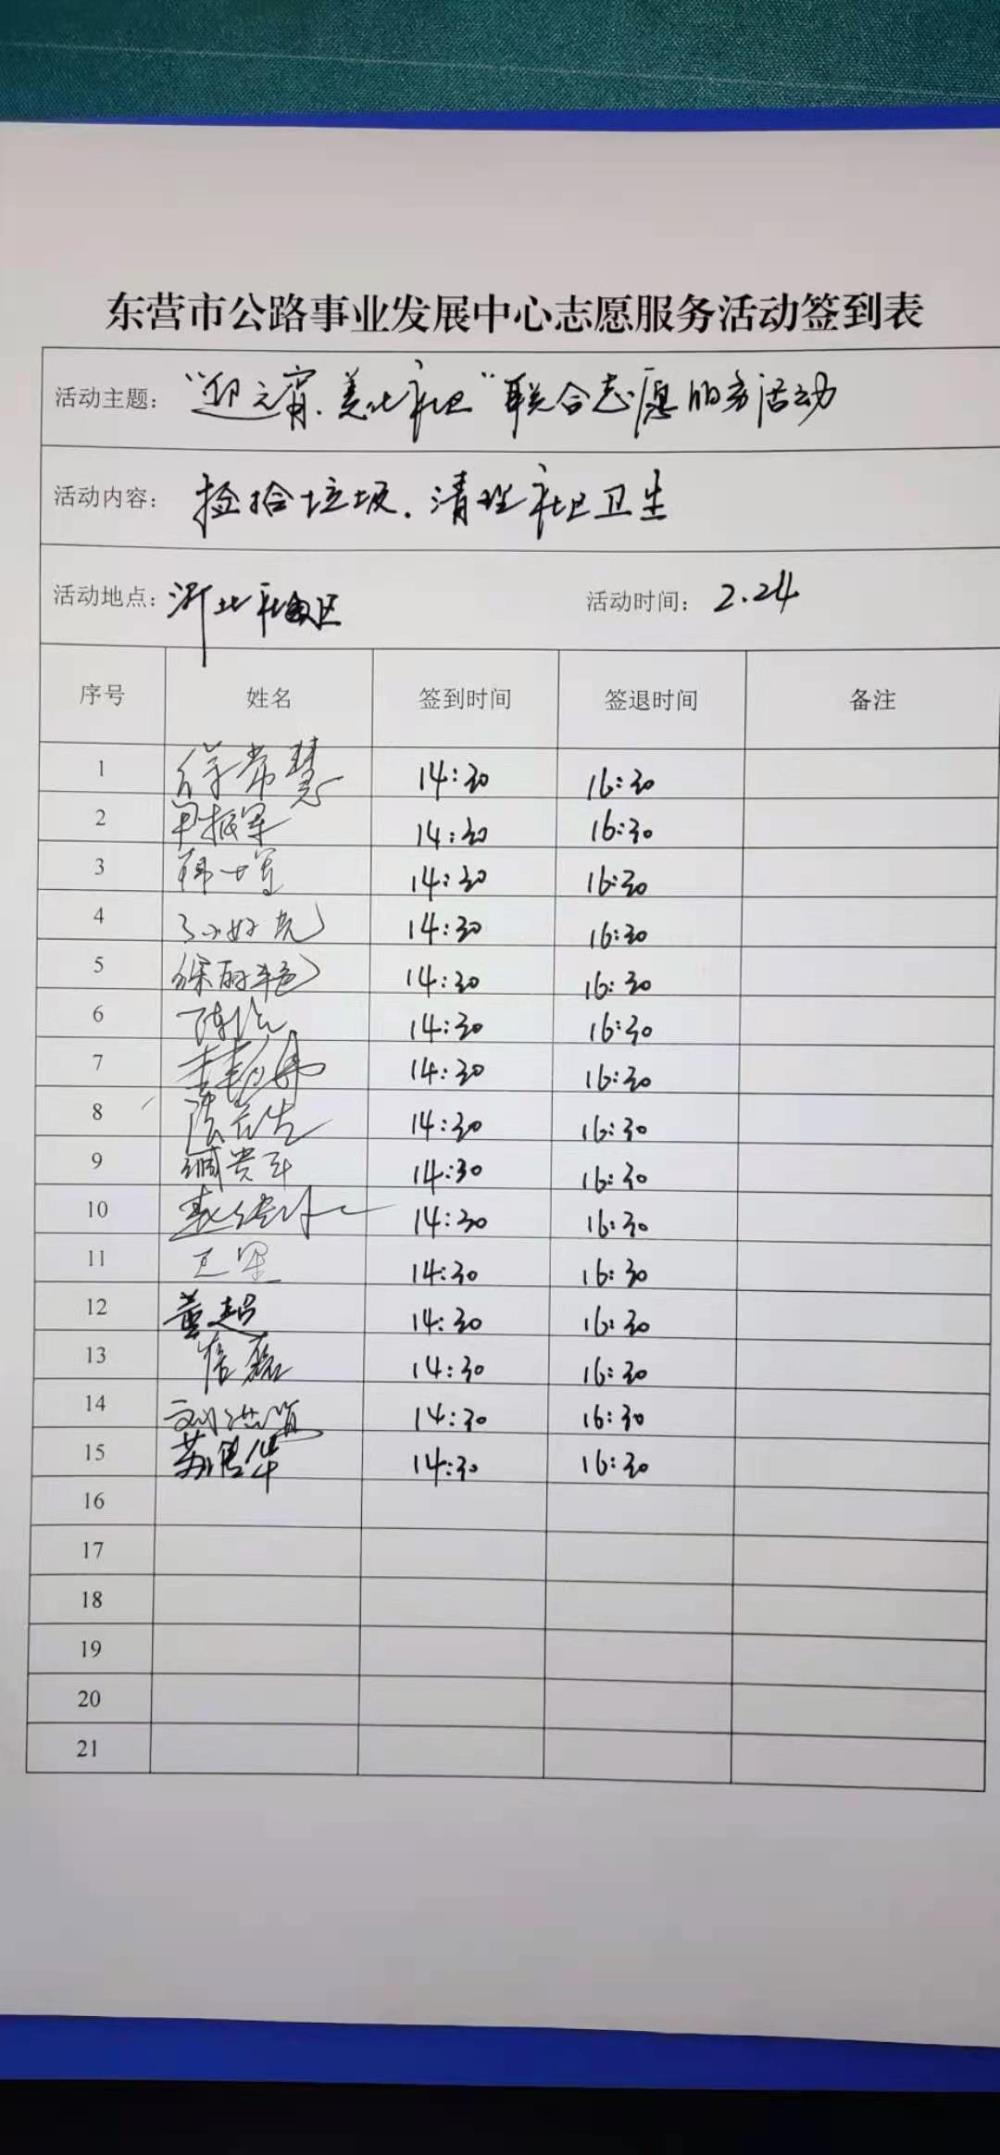 东营市公路事业发展中心志愿服务活动签到表
活动主题： “迎元宵、美化社区”联合志愿服务活动
活动内容： 捡拾垃圾、清理社区卫生
活动地点： 河北社区 活动时间： 2.24
序号 姓名 签到时间 签退时间 备注
1 徐常慧 14:30 16:30
2 14:30 16:30
3 14:30 16:30
4 14:30 16:30
5 14:30 16:30
6 14:30 16:30
7 14:30 16:30
8 14:30 16:30
9 14:30 16:30
10 14:30 16:30
11 14:30 16:30
12 董超 14:30 16:30
13 14:30 16:30
14 14:30 16:30
15 14:30 16:30
16
17
18
19
20
21